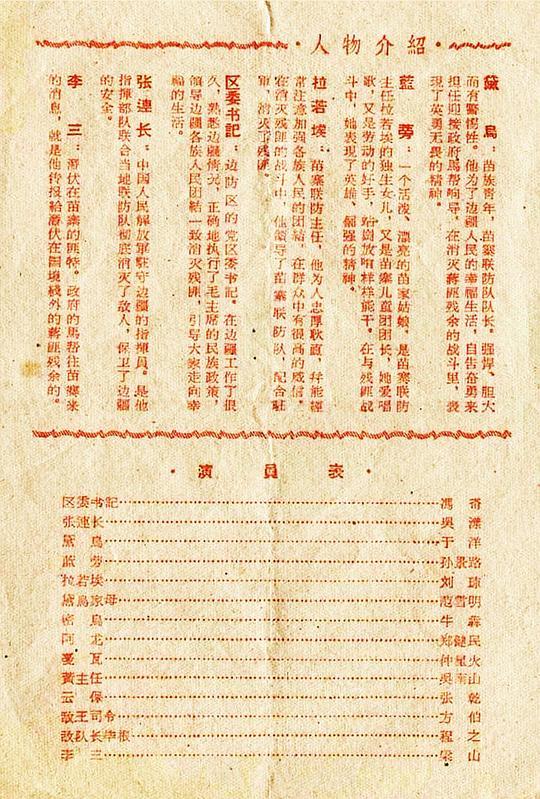 ·人物介紹·
黛 烏：苗族青年，苗寨联防队队长。强悍、胆大
而有警惕性。他为了边疆人民的幸福生活，自告奋勇来
担任迎接政府馬帮向导，在消灭蒋匪残余的战斗里，表
现了英勇无畏的精神。
藍 蒡：一个活泼、漂亮的苗家姑娘，是苗寨联防
主任拉若埃的独生女儿，又是苗寨儿童团团长，她爱唱
歌，又是劳动的好手，放哨样样能干。在与残匪战
斗中，她表现了英雄、倔强的精神。
拉若埃：苗寨联防主任，他为人忠厚耿直，幷能經
常注意加强各族人民的团結，在群众中有很高的威信。
在消灭残匪的战斗中，他领导了苗寨联防队，配合駐
軍，消灭了残匪。
区委书記：边防区的党区委书記。在边疆工作了很
久，熟悉边疆情况，正确地执行了毛主席的民族政策，
领导边疆各族人民团結一致消灭残匪，引导大家走向幸
福的生活。
张連长：中国人民解放軍駐守边疆的指揮員。是他
指揮部队联合当地联防队彻底消灭了敌人，保卫了边疆
的安全。
李 三：潛伏在苗寨的匪特。政府的馬帮往苗鄉来
的消息，就是他传报給潛伏在国境綫外的蒋匪残余的。
·演員表·
区委书記 馮奇
张連长 吳漾
黛烏 于洋
蓝蒡 孙景路
拉若埃 刘琼
黛烏家母 范雪明
密烏 牛犇
阿龙 郑健民
戛瓦 仲星火
黃主任 吳南山
云保 张乾
敌王司令 方伯
敌队长 程之
李三 梁山